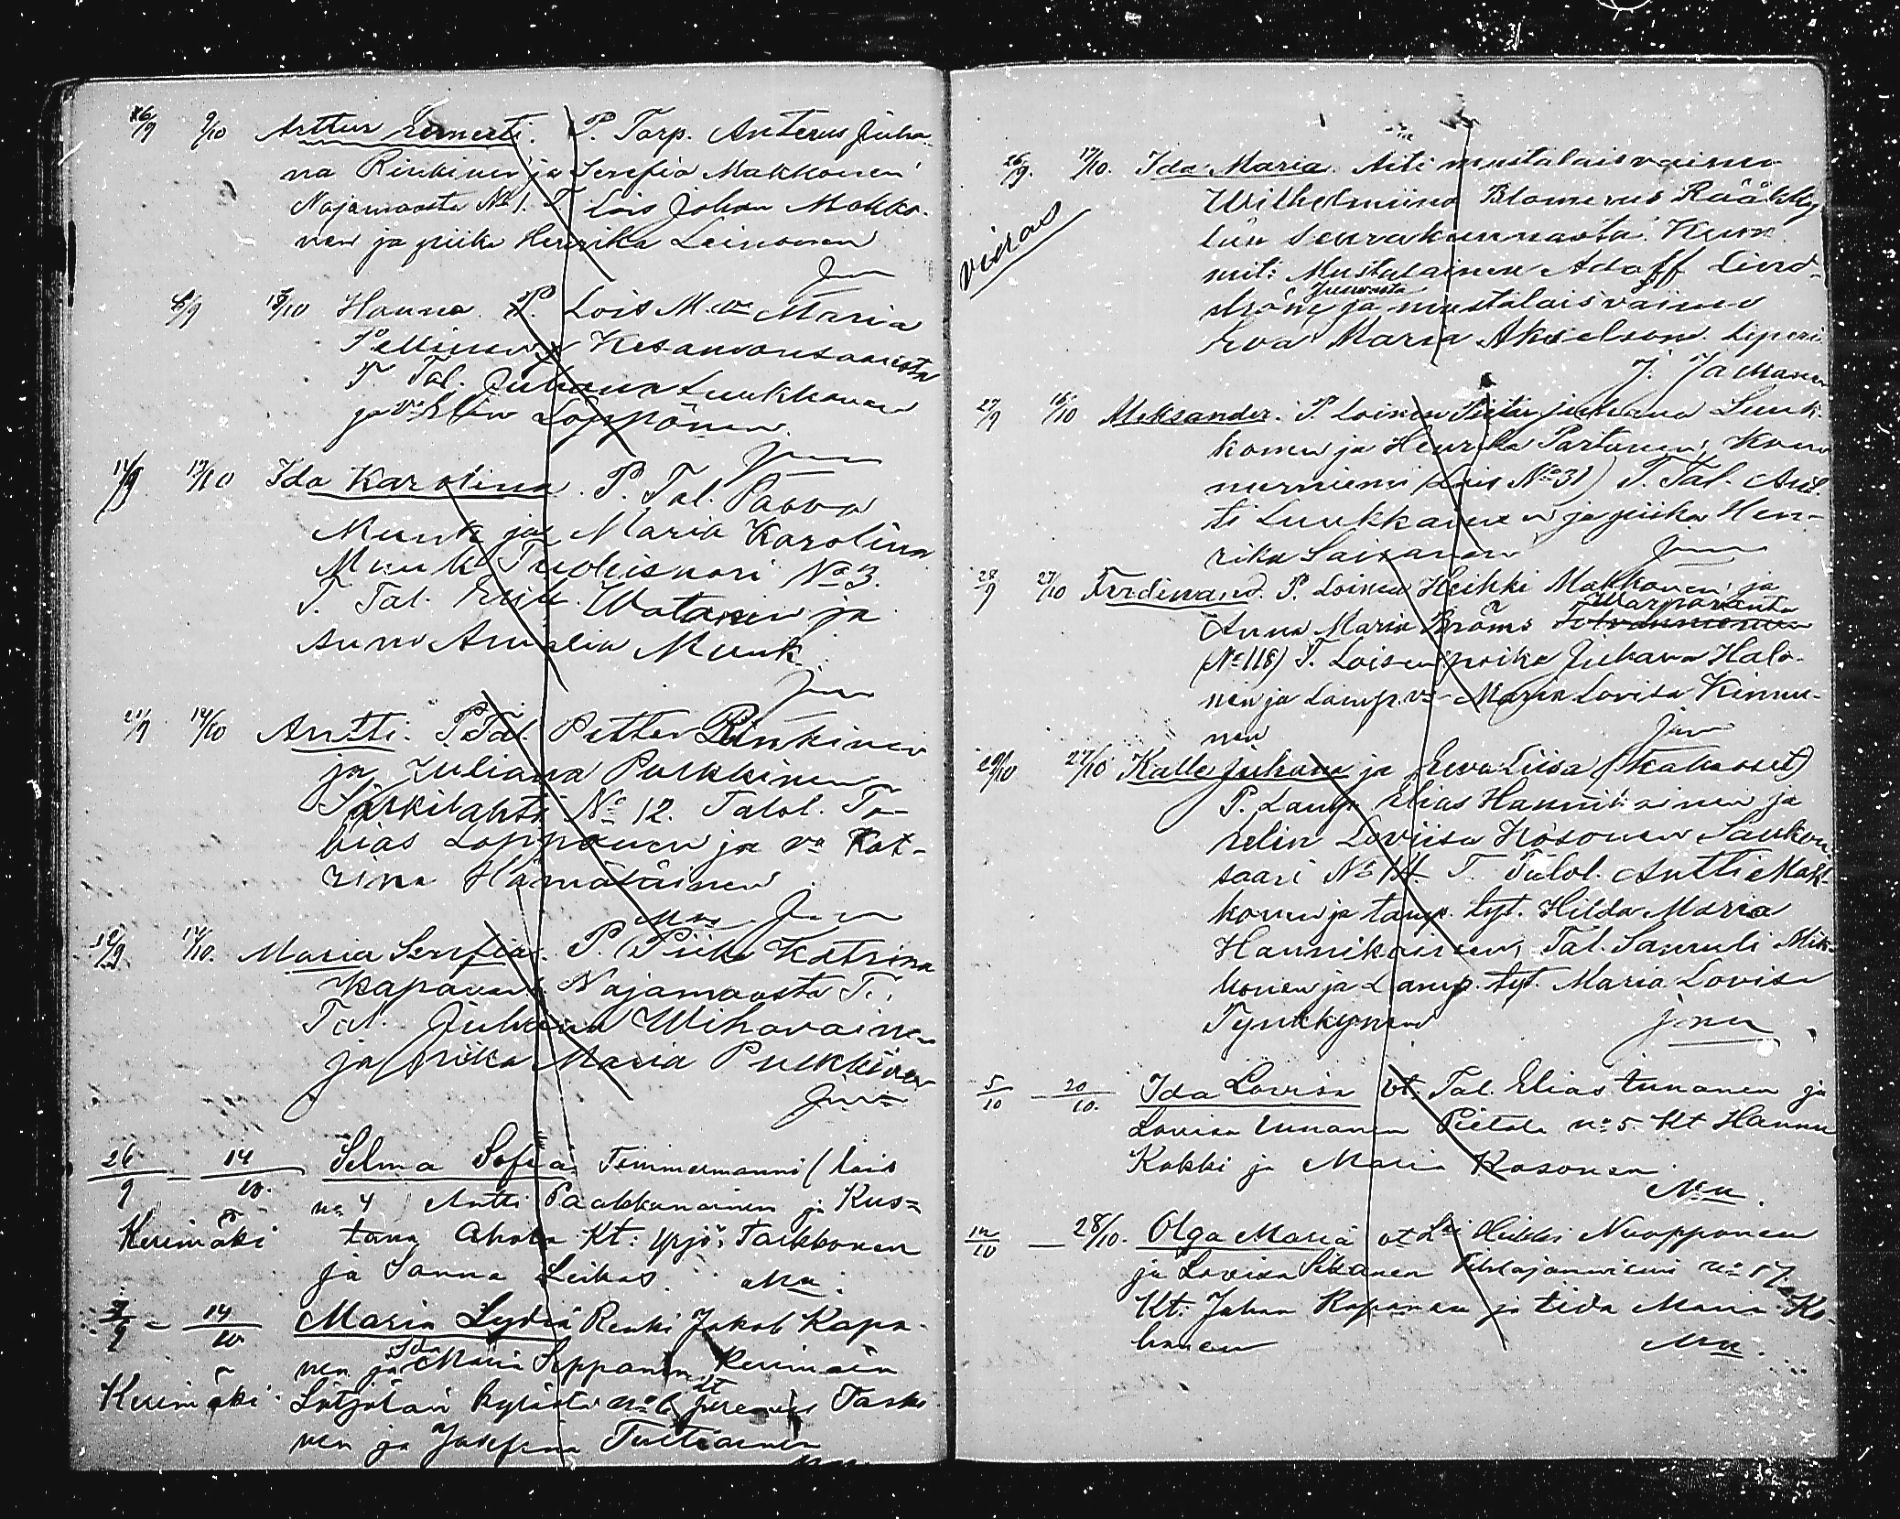 26/9 9/10 Arttur Ernesti. P. Torp. Anterus Juha-
na Rinkinen ja Serefia Makkonen
Najamaasta No 1. T. Lois Johan Makko-
nen ja piika Henrika Leinonen
18/10 Hanna. P. Lois M. va Maria
Pellinen Kesamonsaaresta
T. Tal. Juhana Luukkonen
ja va Elin Loppönen
14/9 13/10 Ida Karolina. P. Tal. Paavo
Munk ja Maria Karolina
Munk No 3.
T. Tal. Erik Watanen ja
Anna Amalia Munk
21/9 14/10 Antti. P. Tal. Petter Rinkinen
ja Juliana Pulkkinen
Särkilahti No 12. Talol. To-
bias Loppönen ja va Kat-
rina Hämäläinen
12/9 14/10. Maria Serefia. P. Piika Katrina
Kapanen Najamaasta T.
Tal. Juhana Wihavainen
ja piika Maria Pulkkinen
26/9 - 14/10. Selma Sofia Timmermanni (lois
no 4 Antti Paakkunainen ja Kus-
Kerimäki tava Ahola Kt: Yrjö Tarkkonen
ja Sanna Leikas.
9 - 14/10 Maria Lydia Renki Jakob Kapa-
nen ja Ida Maria Seppänen Kerimäen
Kerimäki Lötjölän kylästä no 6 kt Jeremias Taski-
nen ja Josefina Turtiainen
26/9. 17/10. Ida Maria. Äiti mustalaisvaimo
Wilhelmiina Blomerus Rääkky-
vieras län seurakunnasta. Kum-
mit: Mustalainen Adolf Lind-
ström ja mustalaisvaimo
Eva Maria Akselson. Liperi.
27/9 16/10 Aleksander. P. Loinen Pietar Juhana Luuk-
konen ja Henrika Partanen, Kom-
nurniemi (Lois No 31) T. Tal. Ant-
ti Luukkanen ja piika Hen-
rika Saisanen
28/9 27/10 Ferdinand. P. Loinen Heikki Makkonen ja
Warparanta
Anna Maria Broms
(No 118) T. Loisen poika Juhana Halo-
nen ja Lamp. va Maria Lovisa Kinnu-
nen
20/10 27/10 Kalle Juhana ja Eeva Liisa (Kaksoset)
P. Lamp. Elias Hannikainen ja
Helin Loviisa Kosonen Saukon-
saari No 14. T. Talol. Antti Mak-
konen ja Lamp. tyt. Hilda Maria
Hannikainen, Tal. Samuli Mik-
konen ja Lamp. tyt. Maria Lovisa
Tynkkynen
5/10 - 20/10. Ida Lovisa vt. Tal. Elias Innanen ja
Lovisa Innanen Pietola no 5 Kt Hannu
Kokki ja Maria Kosonen.
14/10 - 28/10. Olga Maria vt Lois Heikki Nuopponen
ja Lovisa Pitkänen no 17
Kt: Johan Kapanen ja Liida Maria Ko-
honen